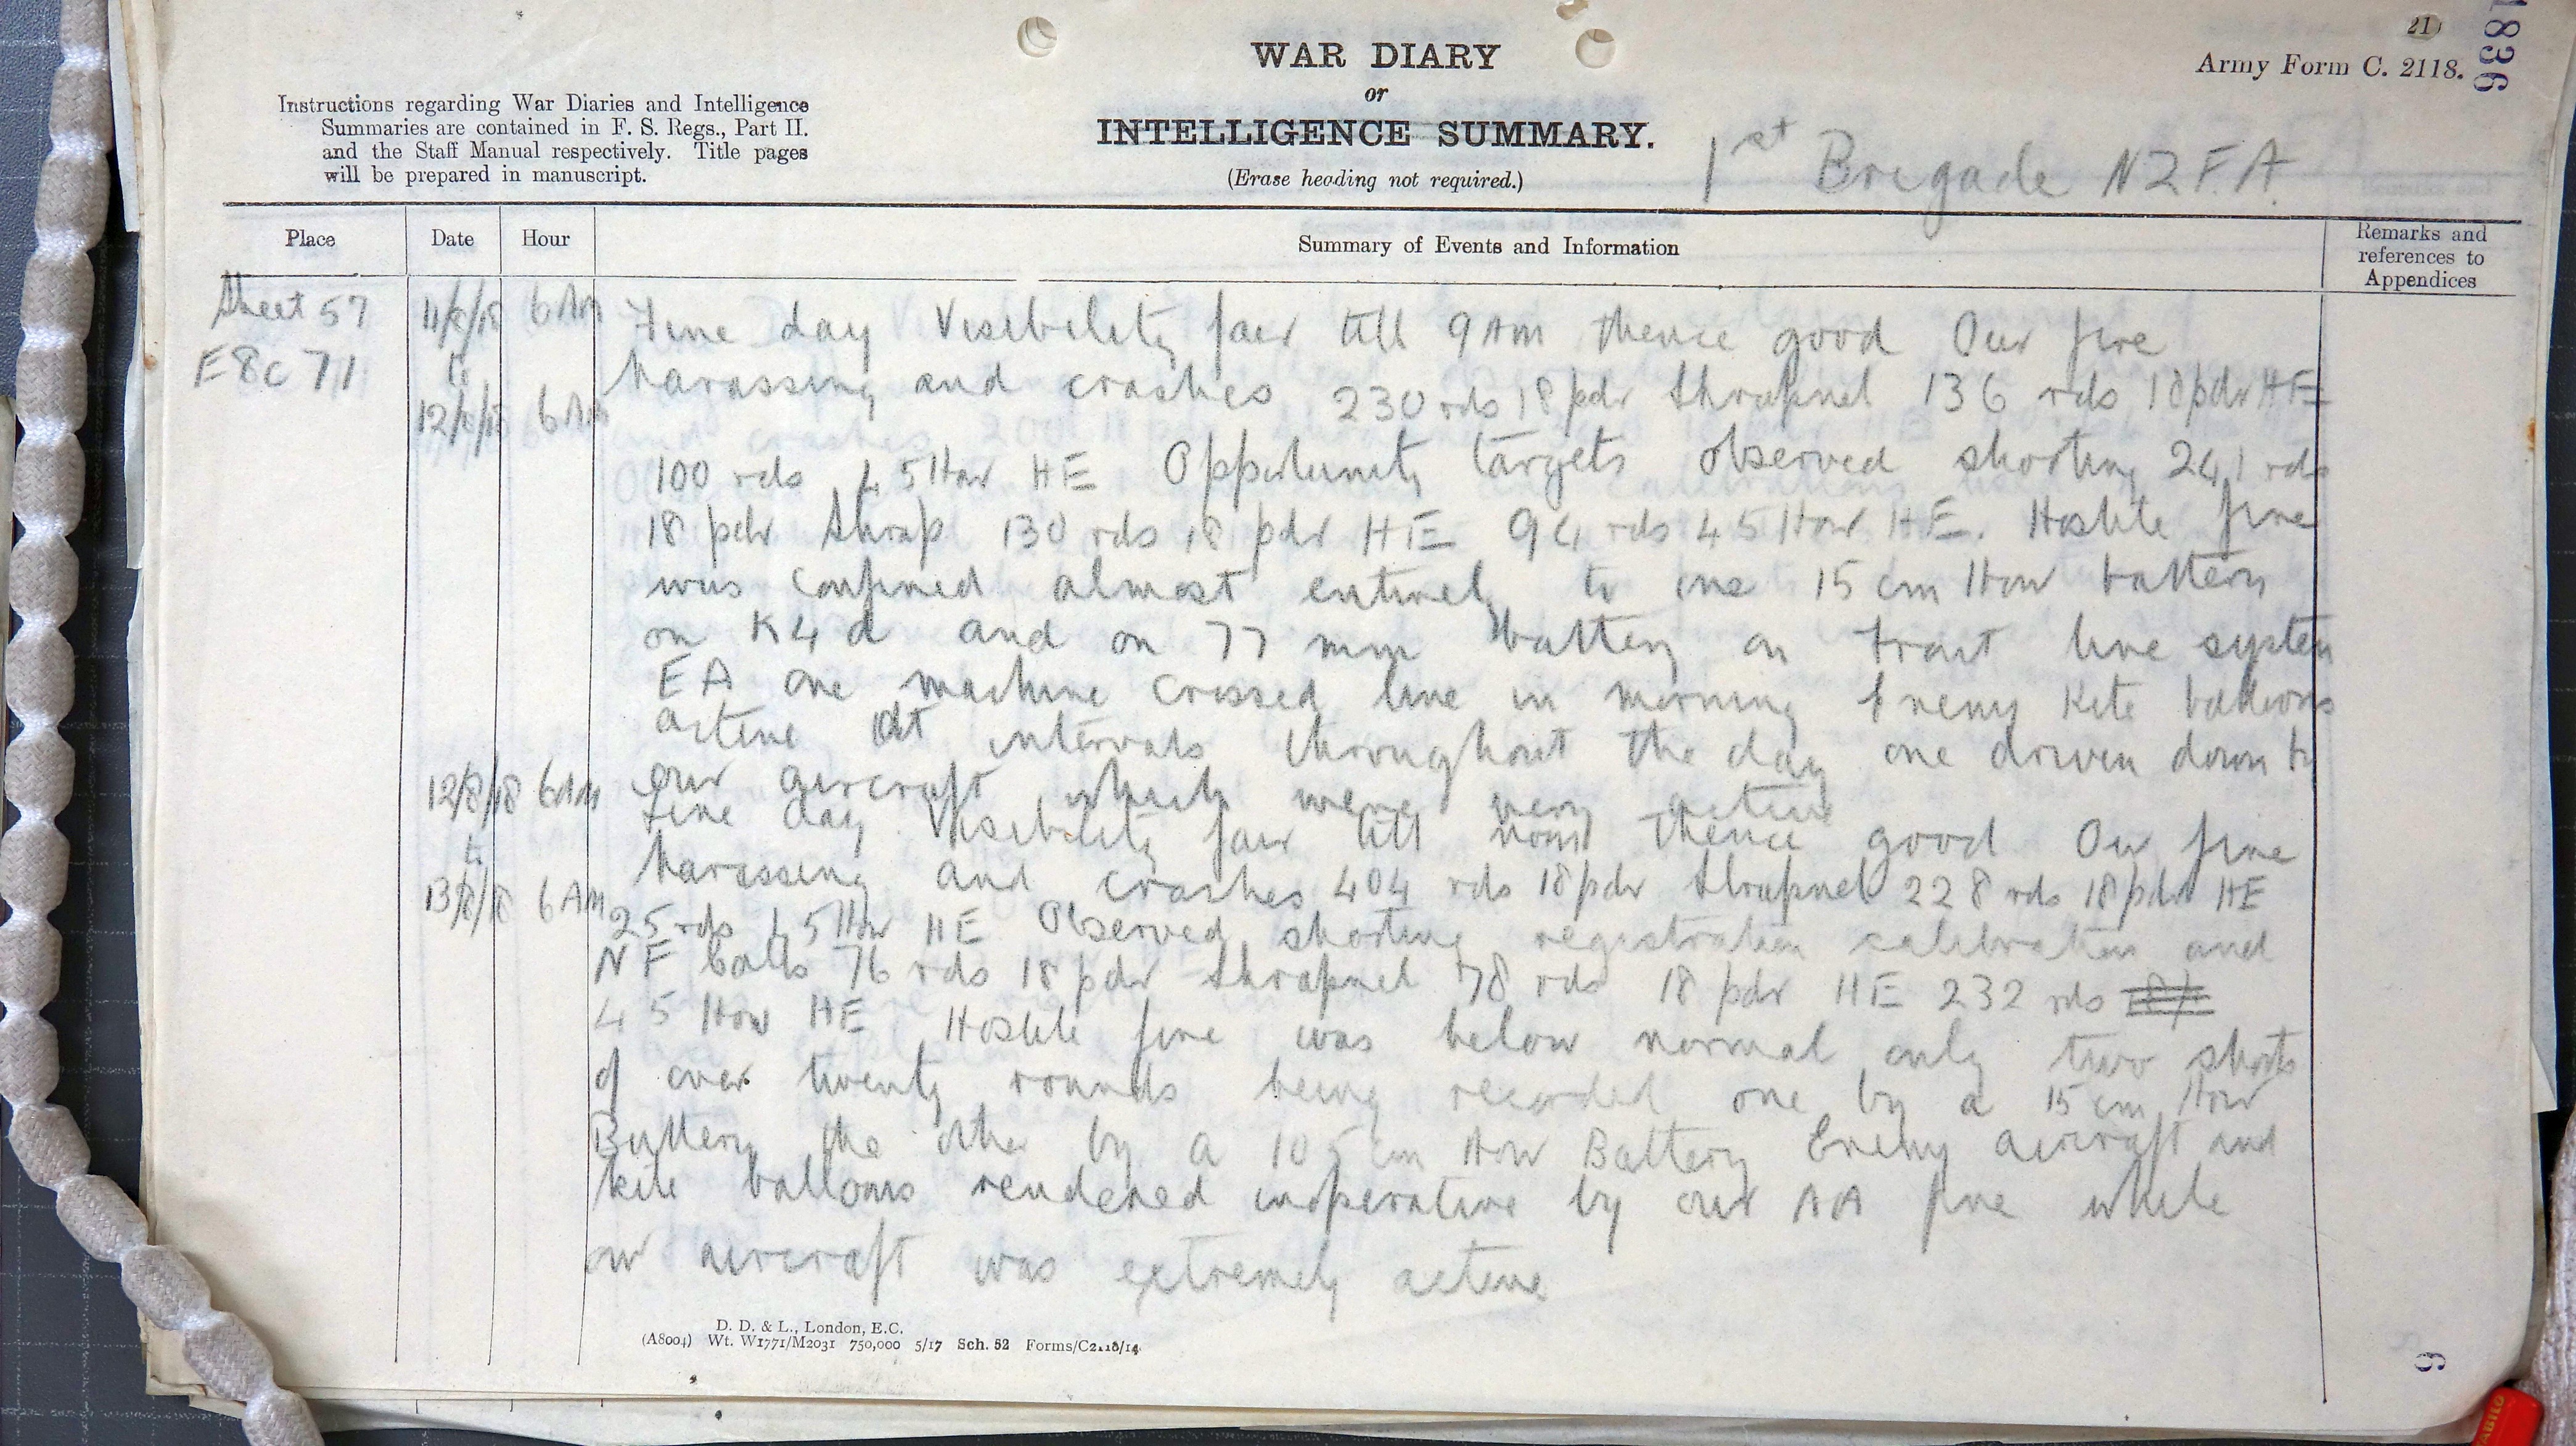 21
1836
Army Form C. 2118.
WAR DIARY
or
INTELLIGENCE SUMMARY.
(Erase heading not required.)
Instructions regarding War Diaries and Intelligence
Summaries are contained in F. S. Regs., Part II.
and the Staff Manual respectively. Title pages
will be prepared in manuscript.
1st Brigade NZFA.
Place
Date
Hour
Summary of Events and Information
Remarks and
references to
Appendices
Sheet 57
E8c 71
11/8/18 6 AM
to
12/8/18 6 AM
Fine day Visibility fair till 9 AM thence good Our fire
harassing and crashes 230 rds 18 pdr Shrapnel 136 rds 18pdr HE
100 rds 4 5 How HE Opportunity targets observed shooting 241 rds
18 pdr Shrap 130 rds 18 pdr HE 94 rds 4 5 How HE. Hostile fire
was confined almost entirely to one 15 cm How battery
on K4 d and on 77 mm battery on front line system
EA one machine crossed line in morning Enemy Kite balloons
active at intervals throughout the day one driven down by
our aircraft which were very active
12/8/18 6 AM
to
13/8/18 6 AM
Fine day Visibility fair till noon thence good Our fire
harassing and crashes 404 rds 18pdr Shrapnel 228 rds 18 pdr HE
25 rds 4 5 How HE Observed shooting registration calibration and
NF calls 76 rds 18 pdr Shrapnel 78 rds 18 pdr HE 232 rds
4 5 How HE Hostile fire was below normal only two shoots
of over twenty rounds being recorded one by a 15 cm How
Battery the other by a 10 5 cm How Battery Enemy aircraft and
kite balloons rendered inoperative by our AA fire while
our aircraft was extremely active
D. D. & L., London, E.C.
(A8004) Wt. W1771/M2031 750,000 5/17 Sch. 52 Forms/C2118/14
9